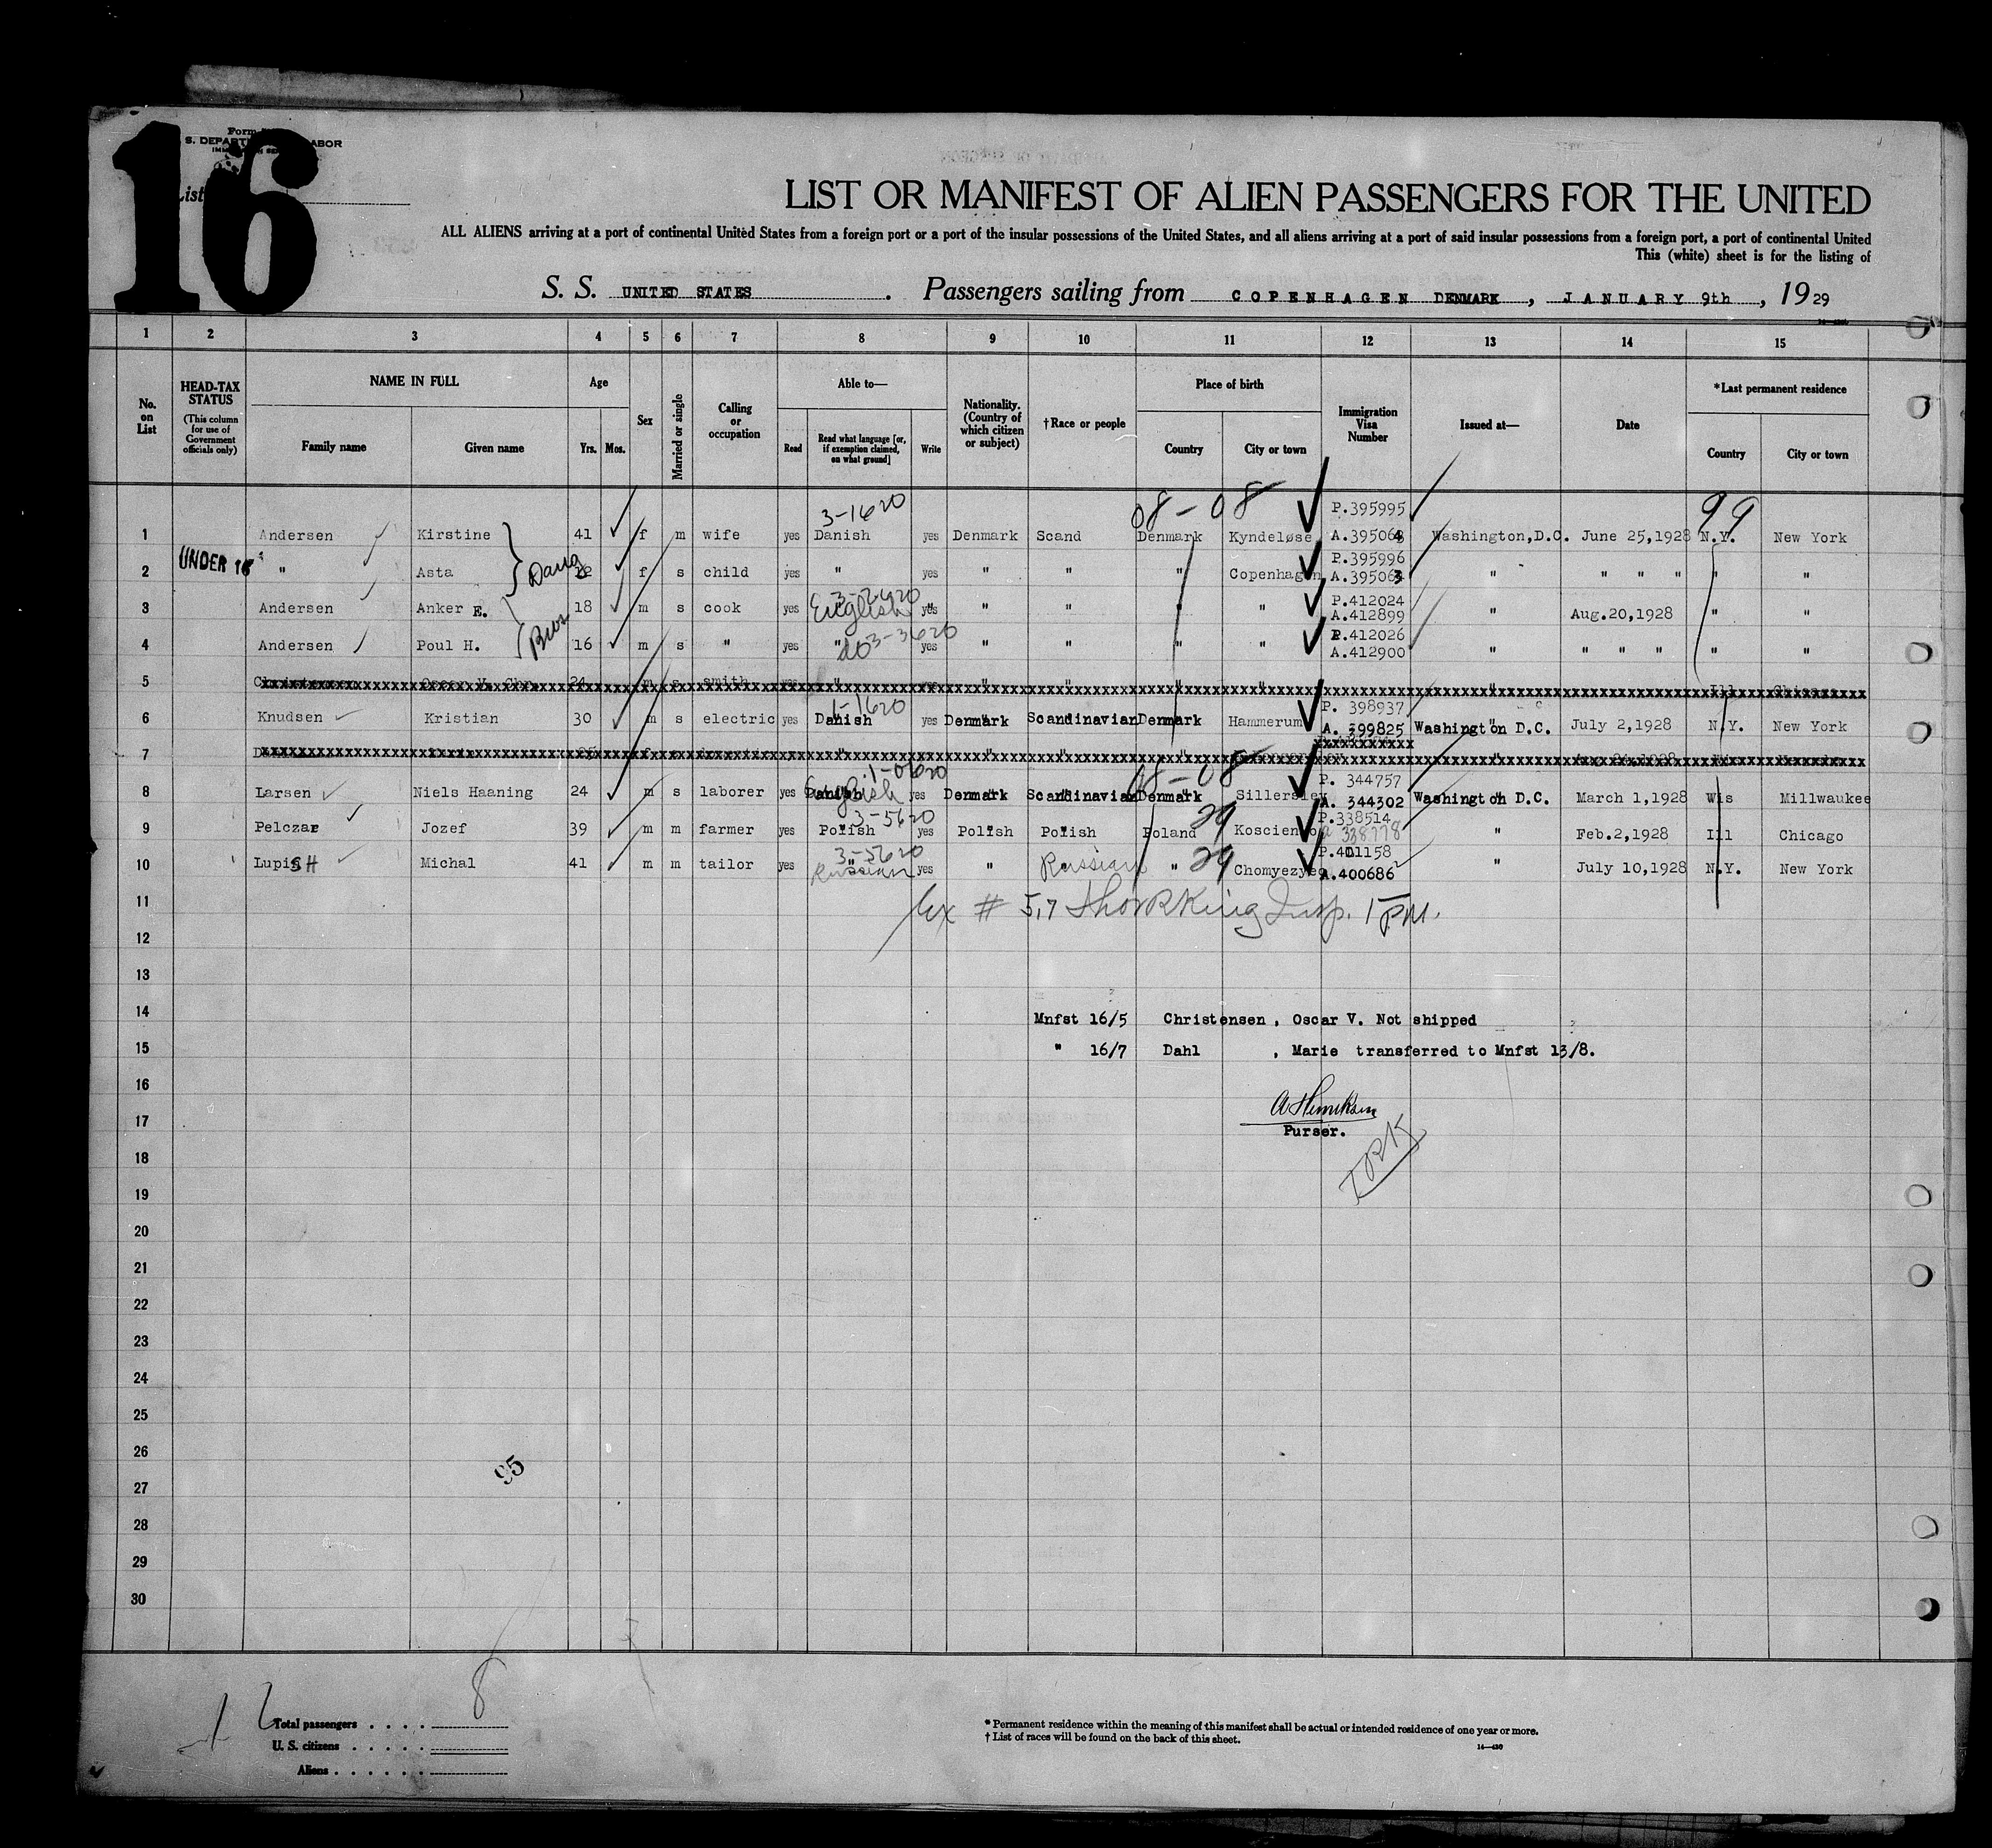 16
Form
S. DEPART ABOR
List
LIST OR MANIFEST OF ALIEN PASSENGERS FOR THE UNITED
ALL ALIENS arriving at a port of continental United States from a foreign port or a port of the insular possessions of the United States, and all aliens arriving at a port of said insular possessions from a foreign port, a port of continental United
This (white) sheet is for the listing of
S. S. UNITED STATES . Passengers sailing from COPENHAGEN DENMARK , JANUARY 9th , 1929
1 2 3 4 5 6 7 8 9 10 11 12 13 14 15
No. on List
HEAD-TAX STATUS (This column for use of Government officials only)
NAME IN FULL
Family name Given name
Age
Yrs. Mos.
Sex
Married or single
Calling or occupation
Able to—
Read Read what language [or, if exemption claimed, on what ground] Write
Nationality. (Country of which citizen or subject)
†Race or people
Place of birth
Country City or town
Immigration Visa Number
Issued at—
Date
*Last permanent residence
Country City or town
3-1620 08-08 P.395995 99
1 Andersen Kirstine 41 f m wife yes Danish yes Denmark Scand Denmark Kyndeløse A.395064 Washington,D.C. June 25,1928 N.Y. New York
UNDER 16 Daug P.395996
2 " Asta 12 f s child yes " yes " " " Copenhagen A.395063 " " " " " "
3-2620 P.412024
3 Andersen Anker E. 18 m s cook yes English yes " " " " A.412899 " Aug.20,1928 " "
Bros 3-3620 P.412026
4 Andersen Poul H. 16 m s " yes " do yes " " " " A.412900 " " " " " "
5 24 m s smith " " " " " " Ill Chicago
1-1620 P. 398937
6 Knudsen Kristian 30 m s electric yes Danish yes Denmark Scandinavian Denmark Hammerum A. 399825 Washington D.C. July 2,1928 N.Y. New York
7 " " " " "
1-0620 08-08 P. 344757
8 Larsen Niels Haaning 24 m s laborer yes Danish English yes Denmark Scandinavian Denmark Sillersley A. 344302 Washington D.C. March 1,1928 Wis Millwaukee
3-5620 29 P.338514
9 Pelczar Jozef 39 m m farmer yes Polish yes Polish Polish Poland 338778 " Feb.2,1928 Ill Chicago
3-5620 29 P.401158
10 LupisH Michal 41 m m tailor yes " Russian yes " Russian " A.400686 " July 10,1928 N.Y. New York
11 Ex # 5,7 Thor R King Insp. 1 PM.
12
13
14 Mnfst 16/5 Christensen , Oscar V. Not shipped
15 " 16/7 Dahl , Marie transferred to Mnfst 13/8.
16
17
Purser.
18 TRK
19
20
21
22
23
24
25
26
95
27
28
29
30
8
Total passengers
U. S. citizens
Aliens
* Permanent residence within the meaning of this manifest shall be actual or intended residence of one year or more.
† List of races will be found on the back of this sheet.
14—430